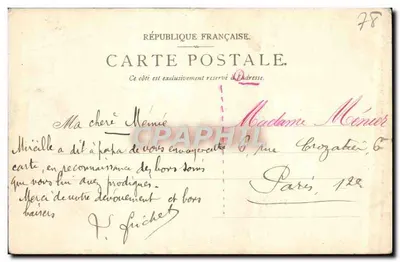 78
RÉPUBLIQUE FRANÇAISE.
CARTE POSTALE.
Ce côté est exclusivement réservé à l'adresse.
Ma chère Mémé
Mireille a dit à papa de vous envoyer cette
carte, en reconnaissance des bons soins
que vous lui avez prodigués.
Merci de votre dévouement et bons
baisers
Madame Ménier
rue Crozatier
Paris, 12e
CPAPHIL